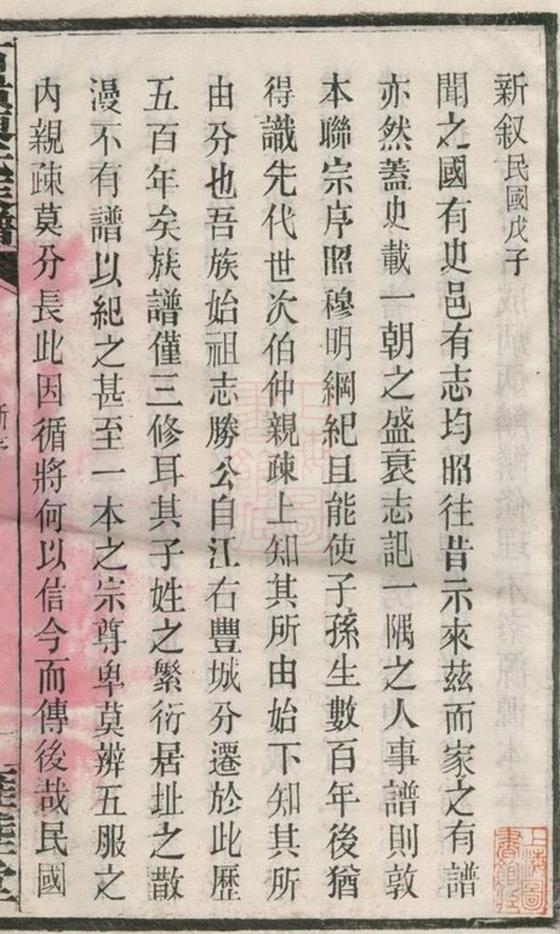 新叙民國戊子
聞之國有史邑有志均昭往昔示來茲而家之有譜
亦然蓋史載一朝之盛衰志記一隅之人事譜則敦
本聯宗序昭穆明綱紀且能使子孫生數百年後猶
得識先代世次伯仲親疎上知其所由始下知其所
由分也吾族始祖志勝公自江右豐城分遷於此歷
五百年矣族譜僅三修耳其子姓之繁衍居址之散
漫不有譜以紀之甚至一本之宗尊卑莫辨五服之
內親疎莫分長此因循將何以信今而傳後哉民國
上海圖
書館藏